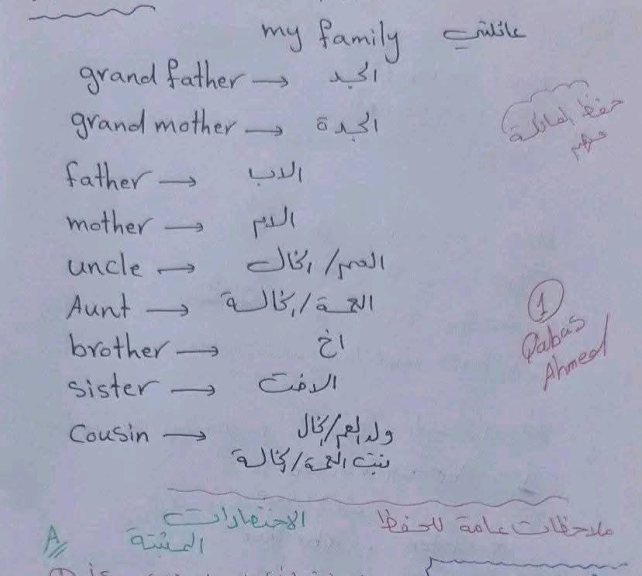 my family عائلتي
grand father → الجد
grand mother → الجدة
حفظ العائلة
مهم
father → الاب
mother → الام
uncle → العم/الخال
Aunt → العمة/الخالة
brother → اخ
sister → الاخت
Cousin → ولد العم/الخال
بنت العمة/الخالة
1
Qabas
Ahmed
ملاحظات عامة للحفظ
A الاختصارات
المثبتة
① is